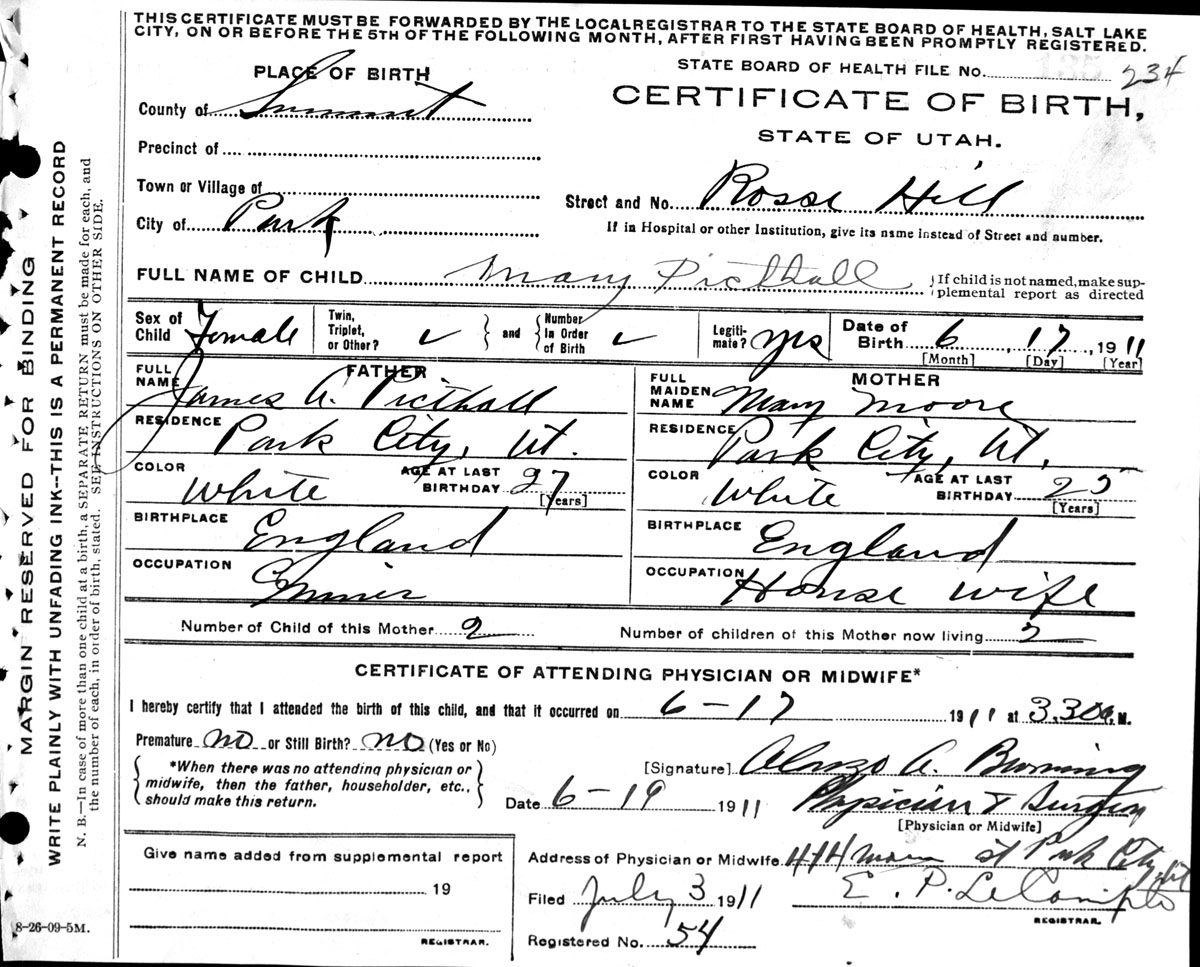 THIS CERTIFICATE MUST BE FORWARDED BY THE LOCAL REGISTRAR TO THE STATE BOARD OF HEALTH, SALT LAKE
CITY, ON OR BEFORE THE 5TH OF THE FOLLOWING MONTH, AFTER FIRST HAVING BEEN PROMPTLY REGISTERED.
STATE BOARD OF HEALTH FILE NO. 234
CERTIFICATE OF BIRTH,
STATE OF UTAH.
PLACE OF BIRTH
County of Summit
Precinct of
Town or Village of
City of Park
Street and No. Rosse Hill
If in Hospital or other Institution, give its name instead of Street and number.
FULL NAME OF CHILD Mary Picthall
{If child is not named, make sup-
plemental report as directed
Sex of Child Female
Twin, Triplet, or Other? ✓ } and { Number In Order of Birth ✓
Legiti-mate? yes
Date of Birth 6, 17, 1911
[Month] [Day] [Year]
FATHER
FULL NAME James A. Picthall
RESIDENCE Park City, Ut.
COLOR White AGE AT LAST BIRTHDAY 27
[Years]
BIRTHPLACE England
OCCUPATION Miner
MOTHER
FULL MAIDEN NAME Mary Moore
RESIDENCE Park City, Ut,
COLOR White AGE AT LAST BIRTHDAY 25
[Years]
BIRTHPLACE England
OCCUPATION House wife
Number of Child of this Mother 2
Number of children of this Mother now living 2
CERTIFICATE OF ATTENDING PHYSICIAN OR MIDWIFE*
I hereby certify that I attended the birth of this child, and that it occurred on 6-17 1911 at 3.30 a. M.
Premature no or Still Birth? no (Yes or No)
{ *When there was no attending physician or
midwife, then the father, householder, etc.,
should make this return. }
[Signature] Alonzo A. Burning
Date 6-19 1911 Physician & Surgeon
[Physician or Midwife]
Address of Physician or Midwife 414 Main st Park City Ut
Filed July 3 1911 E. P. LeCompte
REGISTRAR.
Registered No. 54
Give name added from supplemental report
19
REGISTRAR.
8-26-09-5M.
MARGIN RESERVED FOR BINDING
WRITE PLAINLY WITH UNFADING INK--THIS IS A PERMANENT RECORD
N. B.—In case of more than one child at a birth, a SEPARATE RETURN must be made for each, and
the number of each, in order of birth, stated. SEE INSTRUCTIONS ON OTHER SIDE.